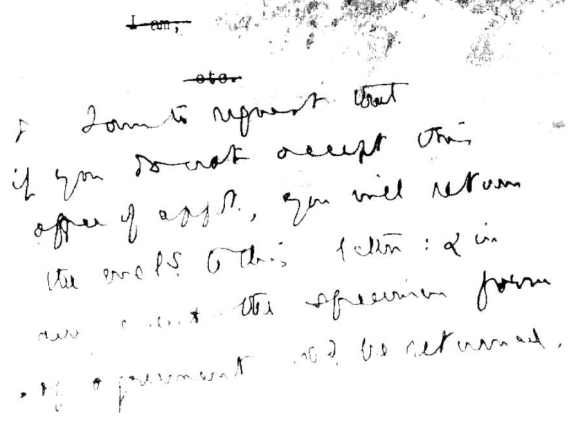 I am,
etc.
I am to request that
if you do not accept this
offer of appt., you will return
the encls. to this letter: & in
any event the specimen form
of agreement shd. be returned.